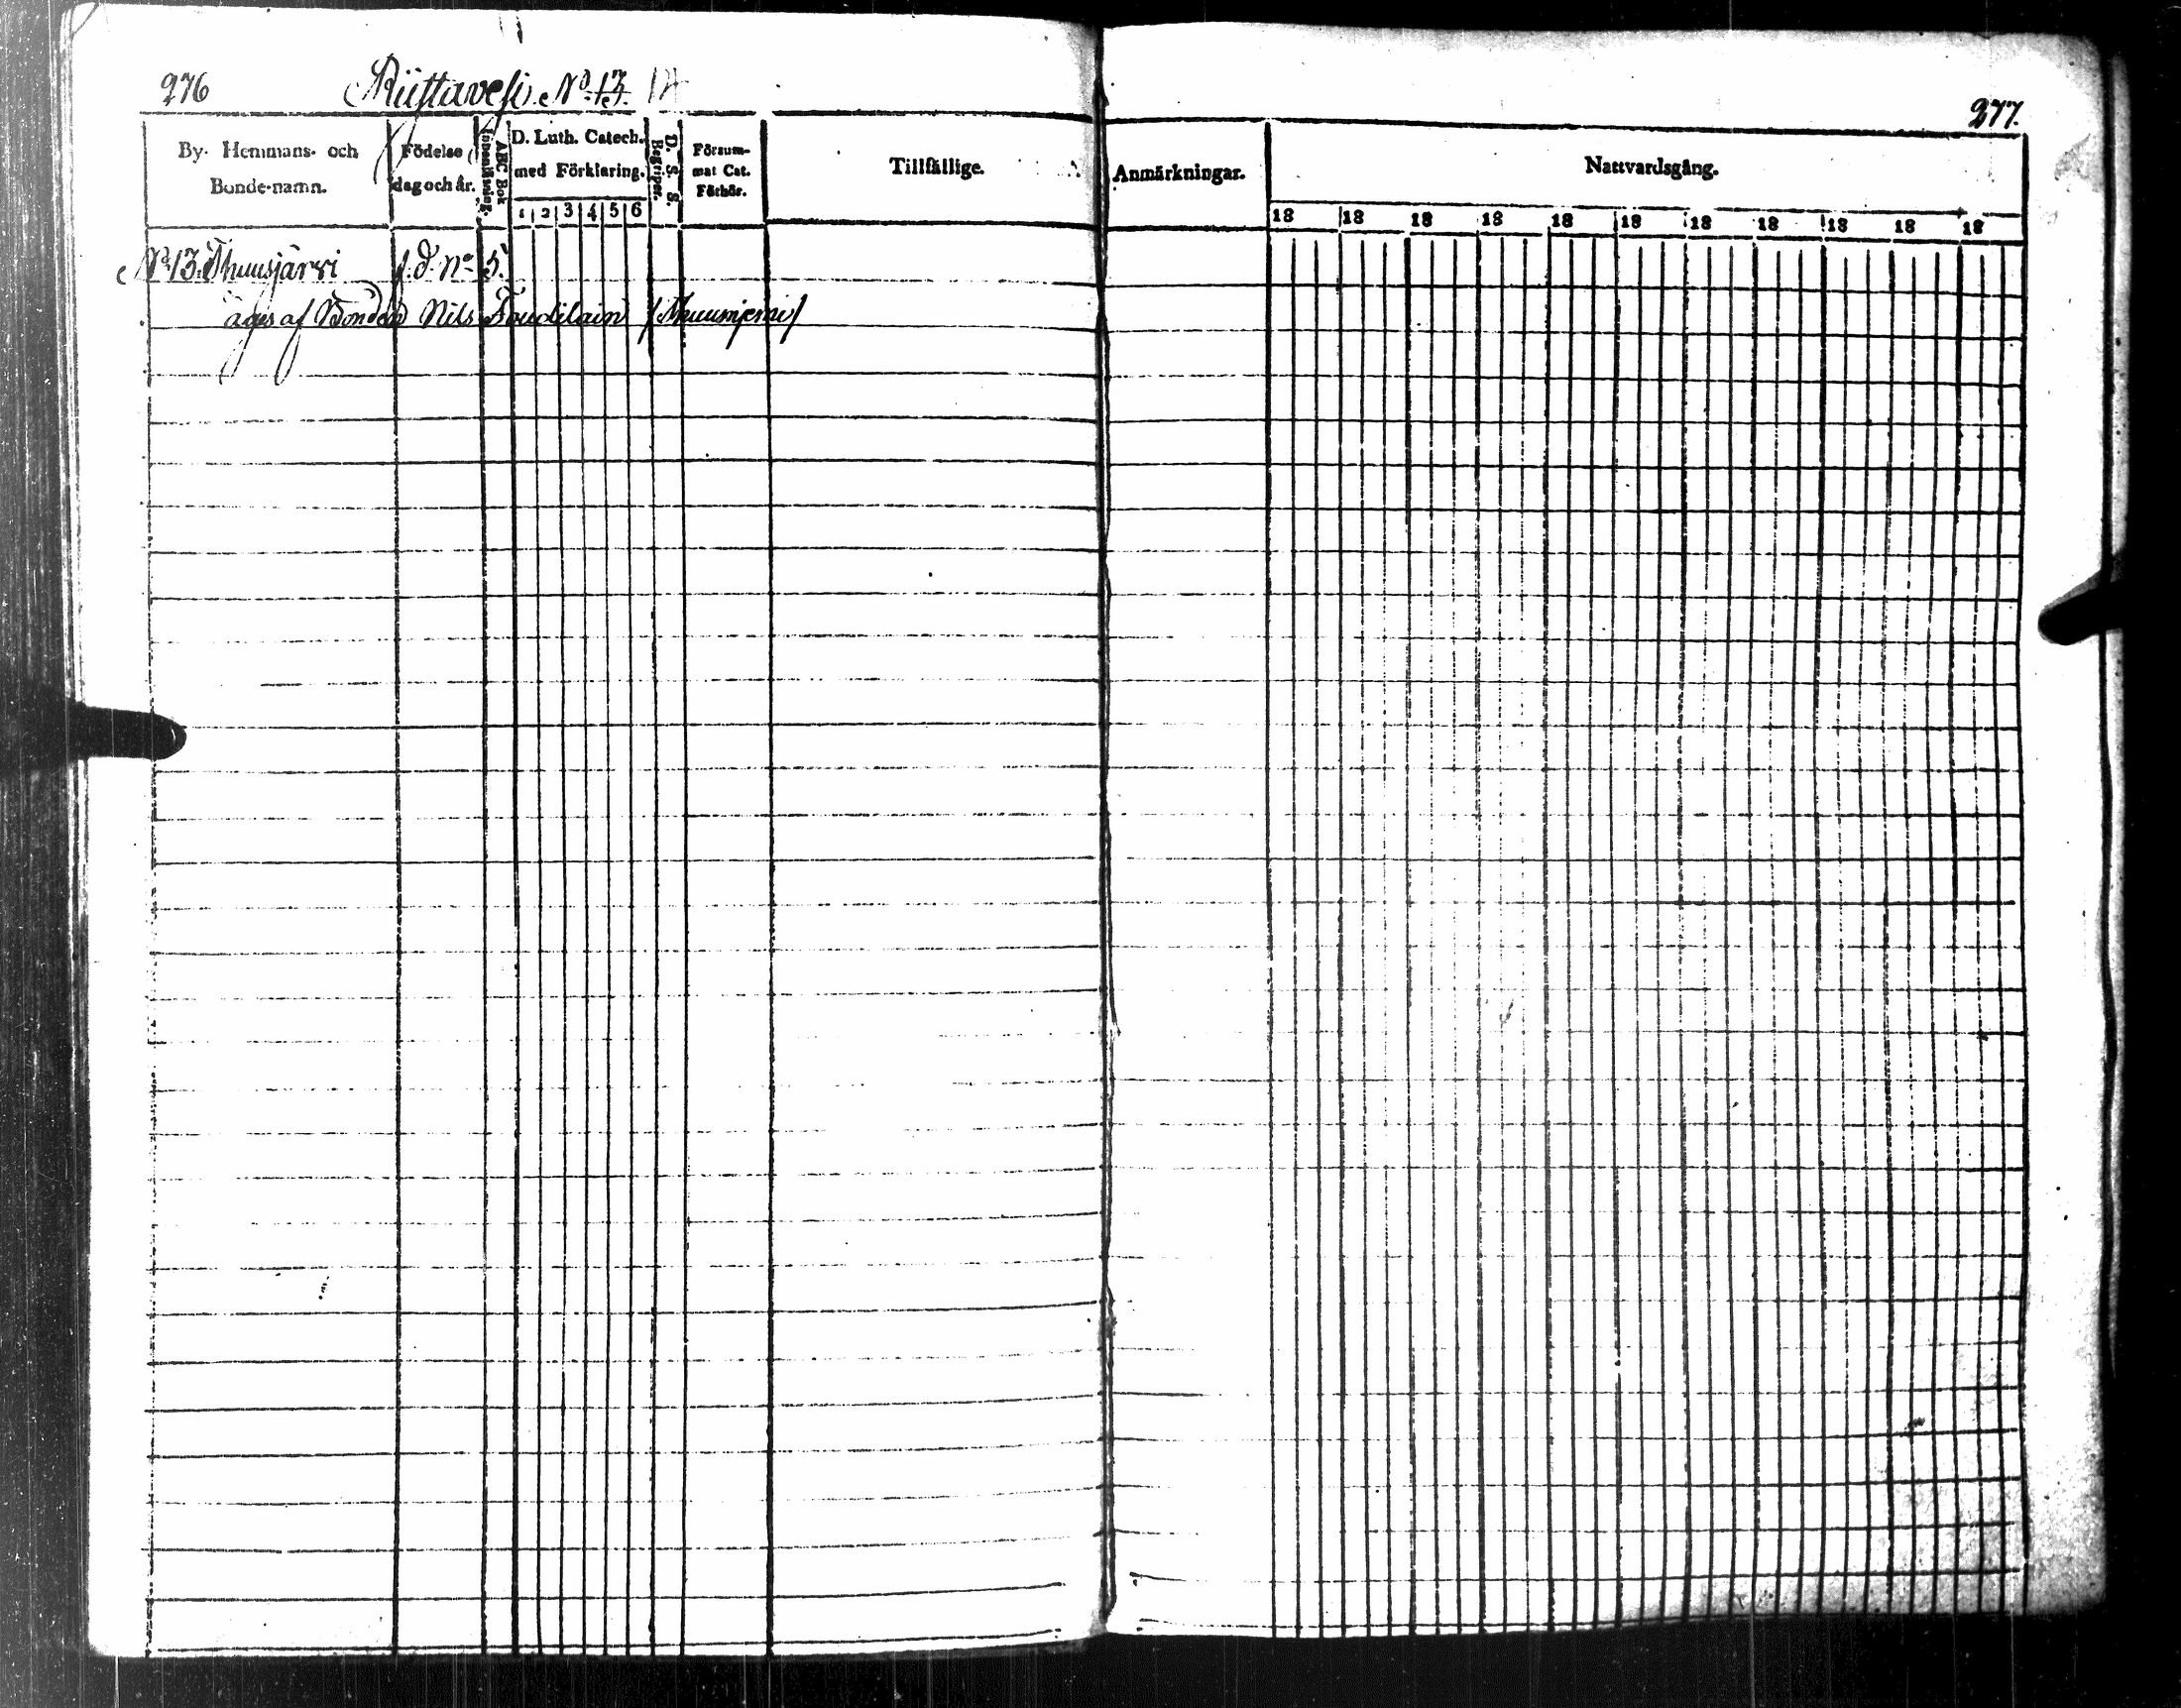 276
Riistavesi. No. 13. 12
277.
By- Hemmans- och Bonde-namn.
Födelse dag och år.
ABC Bok
Innanläsning.
D. Luth. Catech. med Förklaring.
1 2 3 4 5 6
D. S. S.
Begriper.
Försum-
mat Cat.
Förhör.
Tillfällige.
Anmärkningar.
Nattvardsgång.
18 18 18 18 18 18 18 18 18 18 18
No. 13. Thuusjärvi f. d. No 5.
äges af Bonden Nils